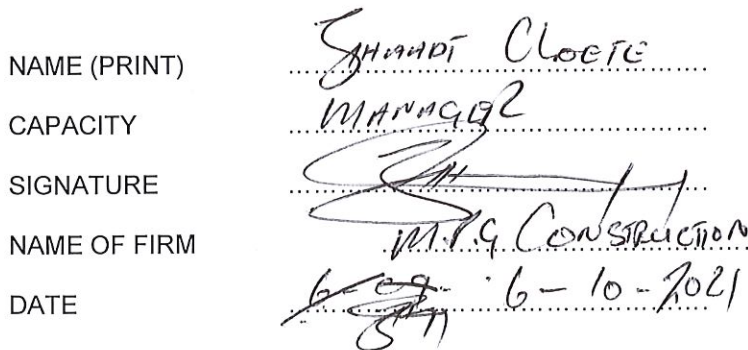 NAME (PRINT) Cloete
CAPACITY MANAGER
SIGNATURE
NAME OF FIRM M.P.G CONSTRUCTION
DATE 6-09- 6-10-2021